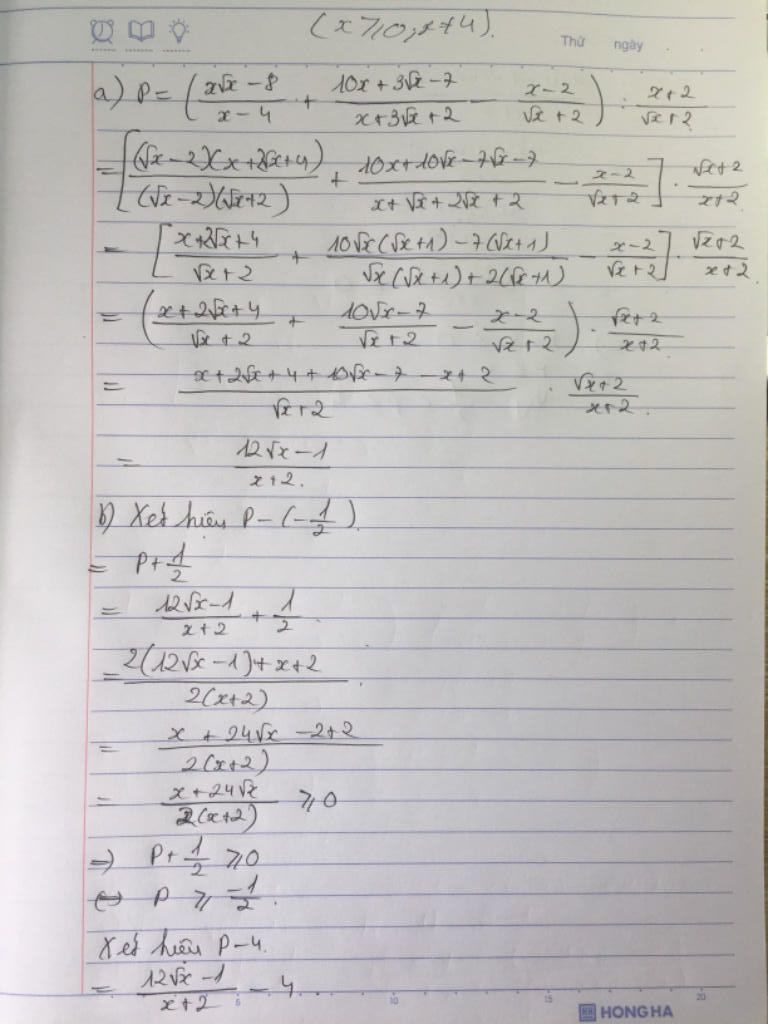 (x ⩾ 0, x ≠ 4).
Thứ ngày
a) P = ( (x√x − 8)/(x − 4) + (10x + 3√x − 7)/(x + 3√x + 2) − (x − 2)/(√x + 2) ) : (x + 2)/(√x + 2)
= [ ((√x − 2)(x + 2√x + 4))/((√x − 2)(√x + 2)) + (10x + 10√x − 7√x − 7)/(x + √x + 2√x + 2) − (x − 2)/(√x + 2) ] · (√x + 2)/(x + 2)
= [ (x + 2√x + 4)/(√x + 2) + (10√x(√x + 1) − 7(√x + 1))/(√x(√x + 1) + 2(√x + 1)) − (x − 2)/(√x + 2) ] · (√x + 2)/(x + 2)
= ( (x + 2√x + 4)/(√x + 2) + (10√x − 7)/(√x + 2) − (x − 2)/(√x + 2) ) · (√x + 2)/(x + 2)
= (x + 2√x + 4 + 10√x − 7 − x + 2)/(√x + 2) · (√x + 2)/(x + 2).
= (12√x − 1)/(x + 2).
b) Xét hiệu P − (−1/2).
= P + 1/2
= (12√x − 1)/(x + 2) + 1/2.
= (2(12√x − 1) + x + 2)/(2(x + 2)).
= (x + 24√x − 2 + 2)/(2(x + 2))
= (x + 24√x)/(2(x + 2)) ⩾ 0
⇒ P + 1/2 ⩾ 0
⇔ P ⩾ −1/2.
Xét hiệu P − 4.
= (12√x − 1)/(x + 2) − 4
5 10 15 20
HONG HA